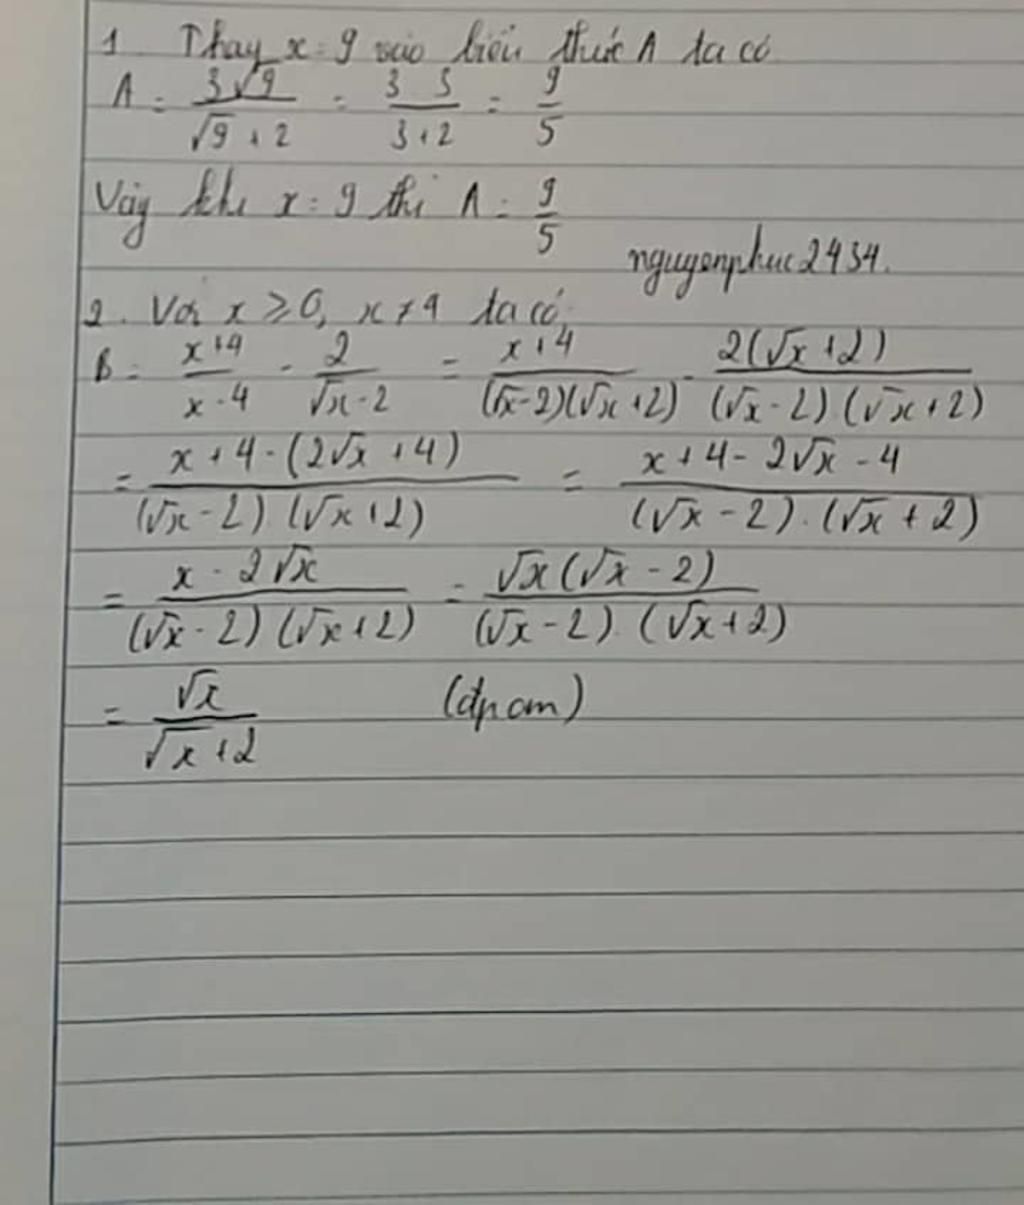 1. Thay x = 9 vào biểu thức A ta có
A = \frac{3√9}{√9 + 2} = \frac{3 . 3}{3 + 2} = \frac{9}{5}
Vậy khi x = 9 thì A = \frac{9}{5}
nguyenphuc2434.
2. Với x ≥ 0, x ≠ 4 ta có
B = \frac{x + 4}{x - 4} - \frac{2}{√x - 2} = \frac{x + 4}{(√x - 2)(√x + 2)} - \frac{2(√x + 2)}{(√x - 2).(√x + 2)}
= \frac{x + 4 - (2√x + 4)}{(√x - 2).(√x + 2)} = \frac{x + 4 - 2√x - 4}{(√x - 2).(√x + 2)}
= \frac{x - 2√x}{(√x - 2)(√x + 2)} = \frac{√x(√x - 2)}{(√x - 2).(√x + 2)}
= \frac{√x}{√x + 2} (đpcm)